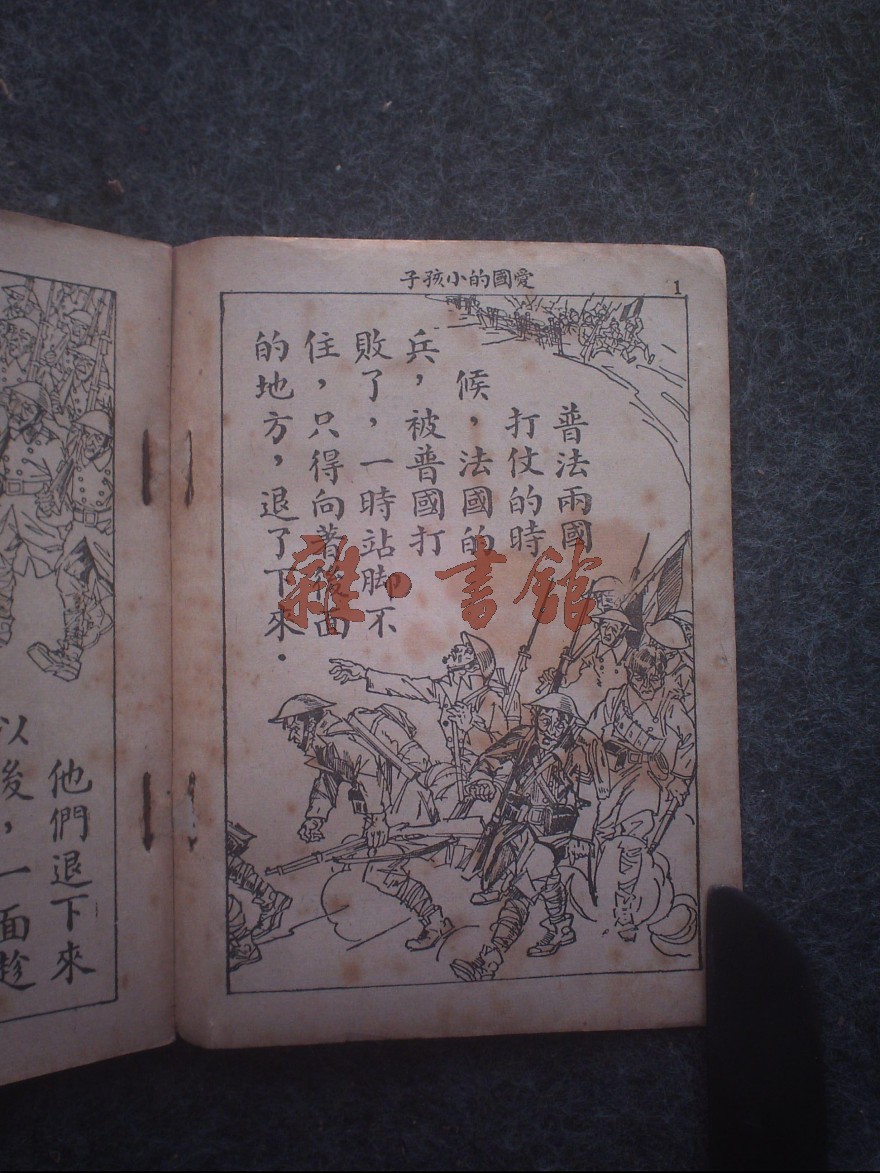 愛國的小孩子
1
普法兩國
打仗的時
候，法國的
兵，被普國打
敗了，一時站脚不
住，只得向著後面
的地方，退了下來．
他們退下來
以後，一面趁
雜·書館